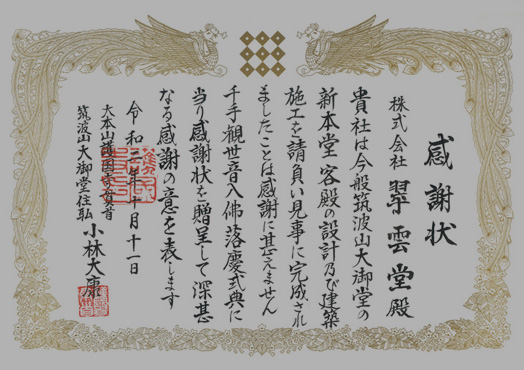 感謝状
株式会社 翠雲堂殿
貴社は今般筑波山大御堂の
新本堂客殿の設計及び建築
施工を請負い見事に完成され
ましたことは感謝に甚えません
千手觀世音入佛落慶式典に
当り感謝状を贈呈して深甚
なる感謝の意を表します
令和二年十月十一日
大本山護国寺貫首
筑波山大御堂住職 小林大康